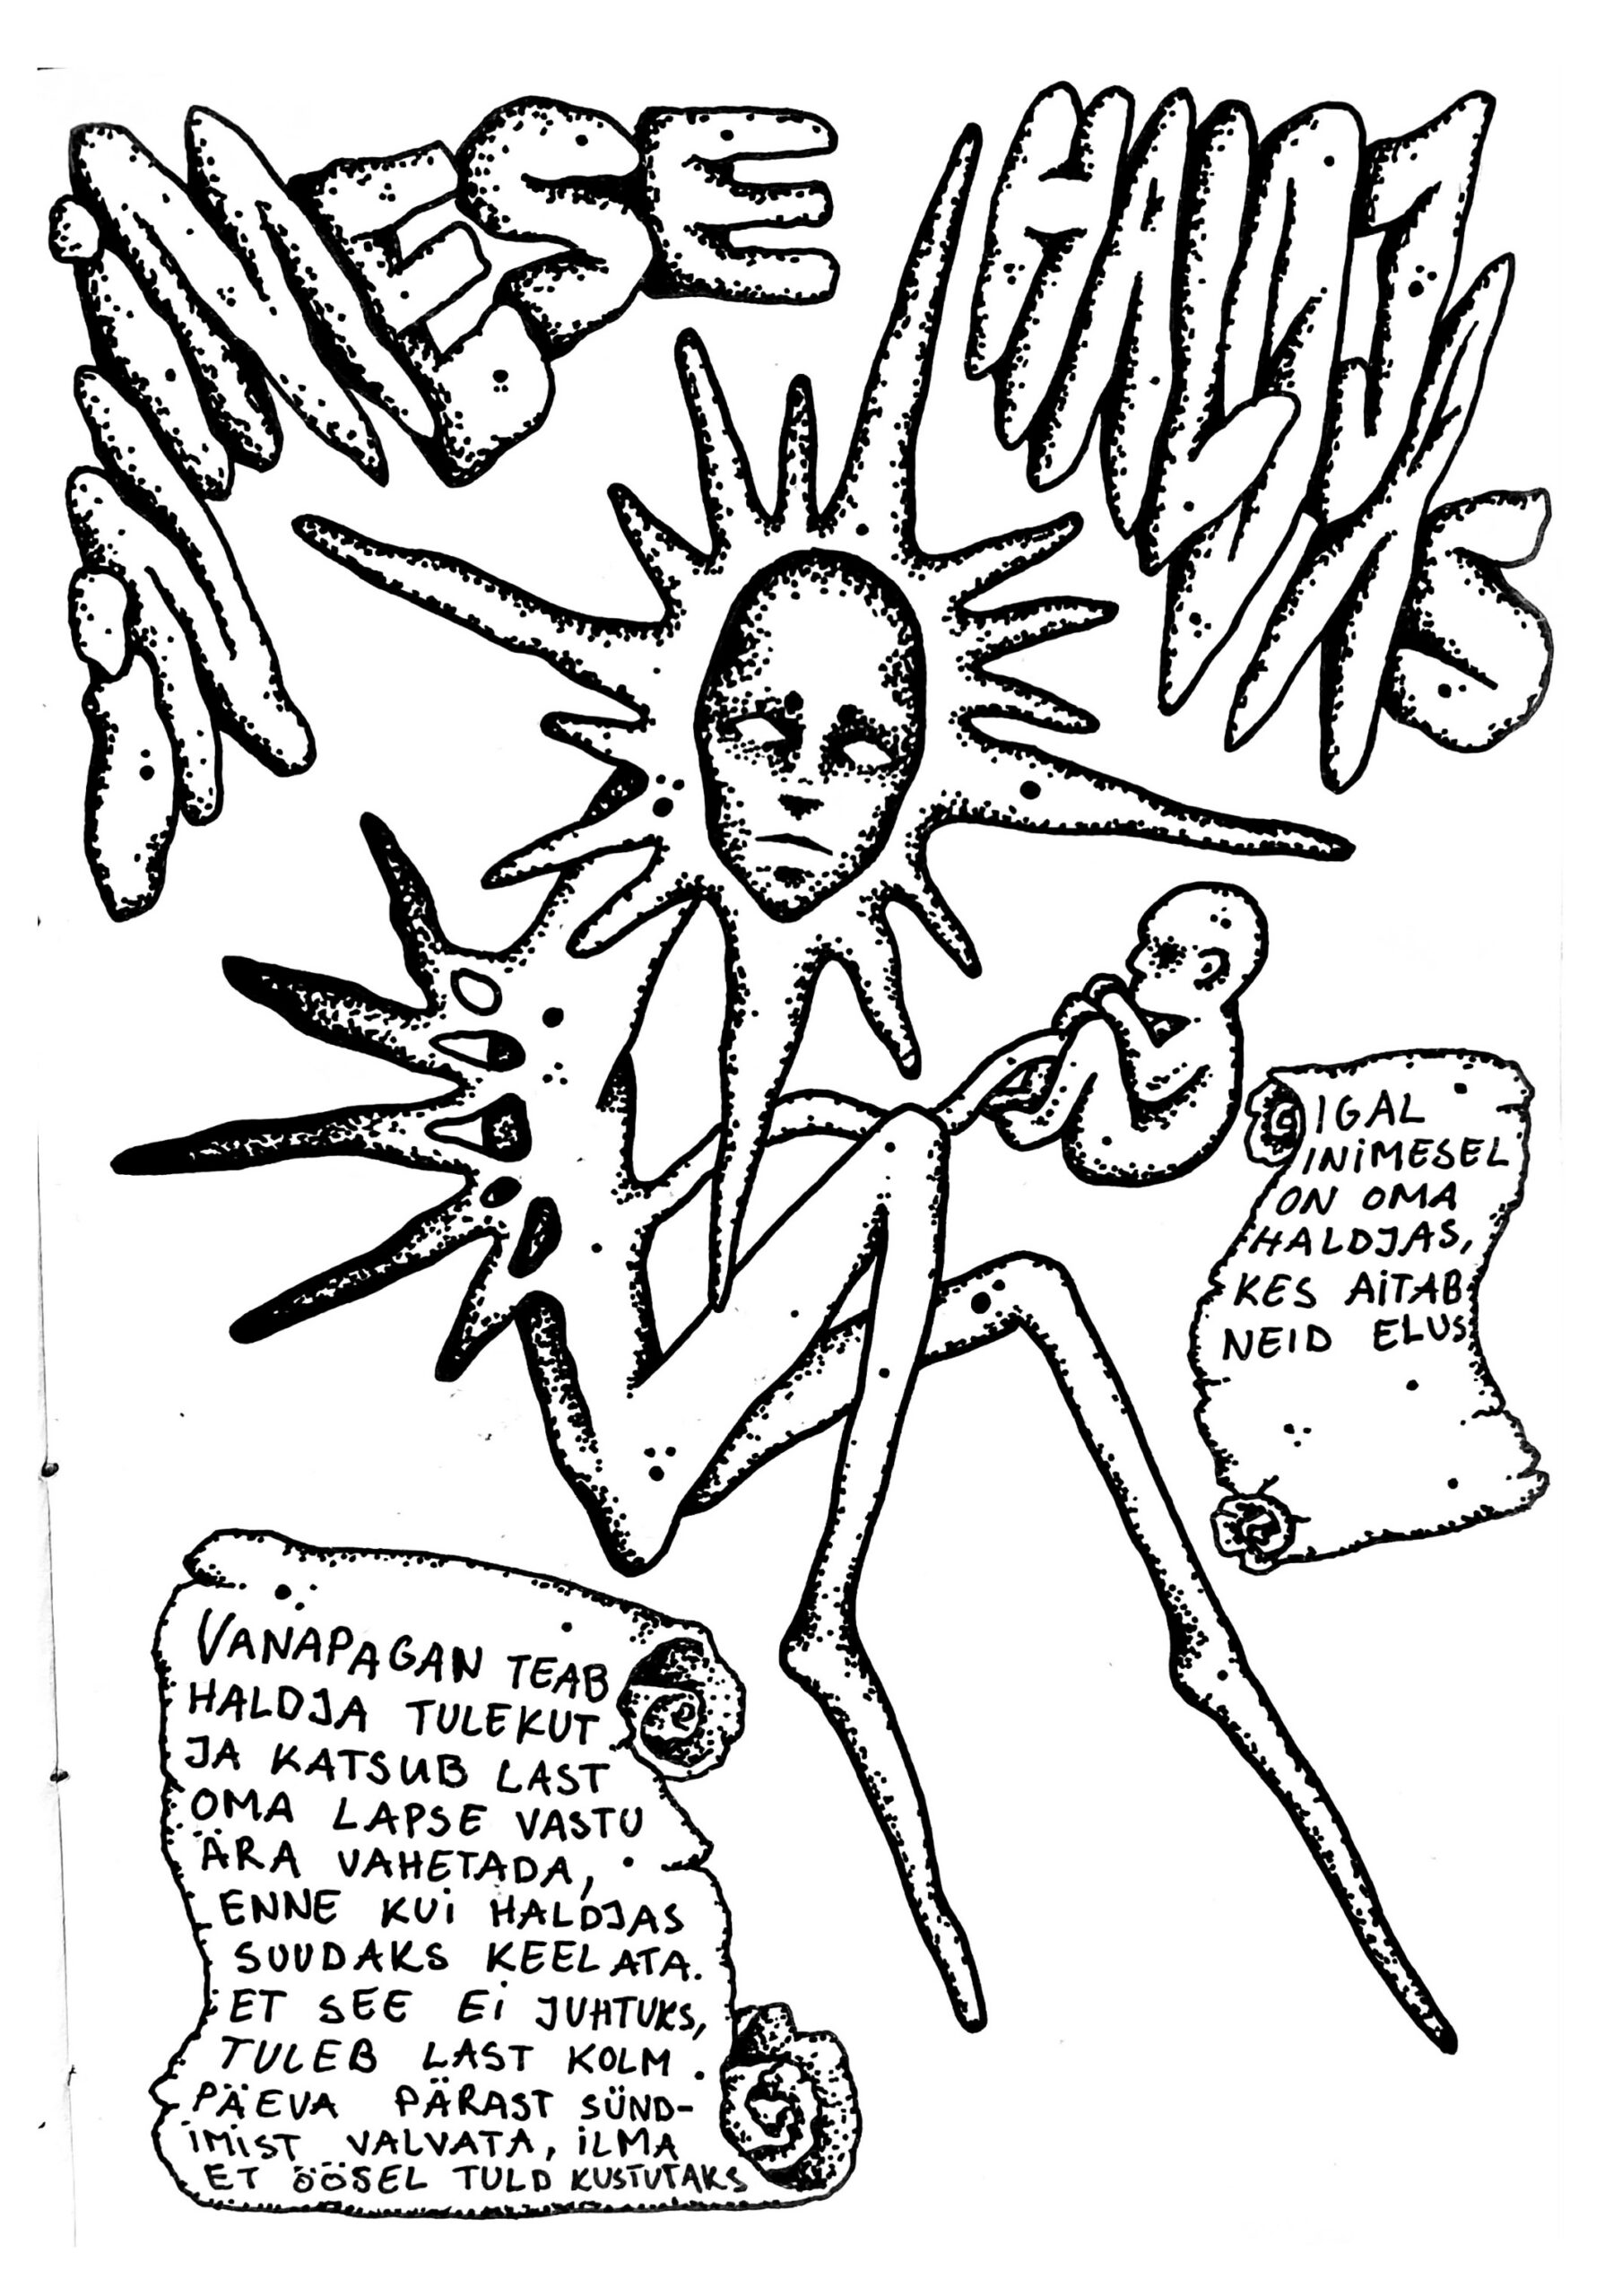 INIMESE
HALDJAS
IGAL
INIMESEL
ON OMA
HALDJAS,
KES AITAB
NEID ELUS
VANAPAGAN TEAB
HALDJA TULEKUT
JA KATSUB LAST
OMA LAPSE VASTU
ÄRA VAHETADA,
ENNE KUI HALDJAS
SUUDAKS KEELATA.
ET SEE EI JUHTUKS,
TULEB LAST KOLM
PÄEVA PÄRAST SÜND-
IMIST VALVATA, ILMA
ET ÖÖSEL TULD KUSTUTAKS